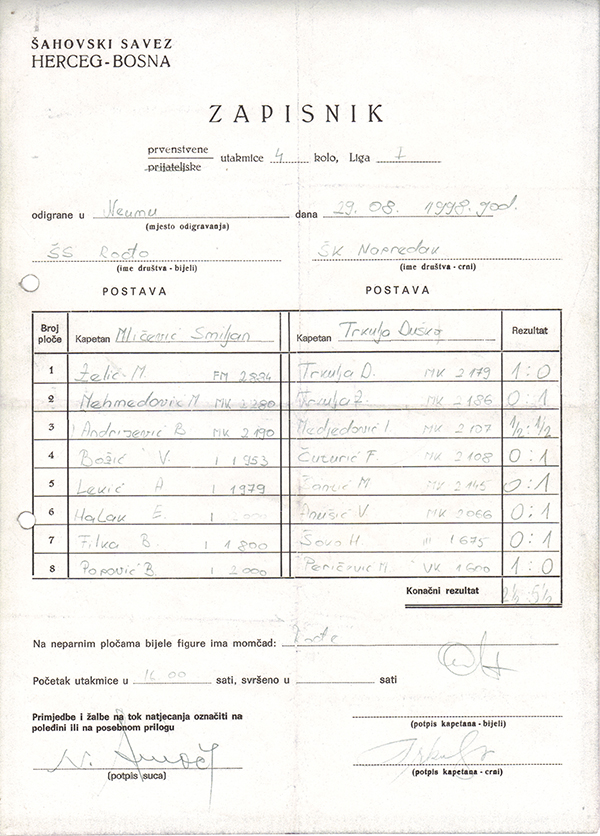 ŠAHOVSKI SAVEZ
HERCEG-BOSNA
ZAPISNIK
prvenstvene
prijateljske
utakmice 4 kolo, Liga I
odigrane u Neumu dana 29. 08. 1998. god.
(mjesto odigravanja)
ŠS ŠK Napredak
(ime društva - bijeli) (ime društva - crni)
POSTAVA POSTAVA
Broj ploče Kapetan Miličević Smiljan Kapetan Trkulja Duško Rezultat
1 Zelić M FM 2284 Trkulja D. MK 2179 1:0
2 Mehmedović M MK 2280 Trkulja Z. MK 2186 0:1
3 Andrijević B MK 2190 Medjedović I. MK 2107 1/2:1/2
4 Božić V. I 1953 F. MK 2108 0:1
5 Lekić A I 1979 M MK 2145 0:1
6 Halak E. I Anušić V MK 2066 0:1
7 Filka B. I 1800 Šovo H III 1675 0:1
8 Popović B. I 2000 Peričević M VK 1600 1:0
Konačni rezultat 2½:5½
Na neparnim pločama bijele figure ima momčad:
Početak utakmice u 16 00 sati, svršeno u sati
Primjedbe i žalbe na tok natjecanja označiti na
poleđini ili na posebnom prilogu
(potpis kapetana - bijeli)
(potpis suca)
(potpis kapetana - crni)